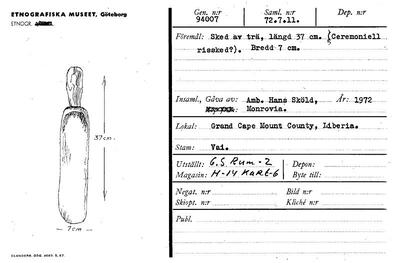 ETNOGRAFISKA MUSEET, Göteborg
ETNOGR.
37cm
7cm
ELANDERS, GBG
Gen. n:r
94007
Saml. n:r
72.7.11.
Dep. n:r
Föremål: Sked av trä, längd 37 cm. (Ceremoniell
rissked?). Bredd 7 cm.
Insaml., Gåva av: Amb. Hans Sköld, År: 1972
Monrovia.
Lokal: Grand Cape Mount County, Liberia.
Stam: Vai.
Utställt: G.S. Rum-2 Depon:
Magasin: H-14 KART-6 Byte till:
Negat. n:r Bild n:r
Skiopt. n:r Kliché n:r
Publ.